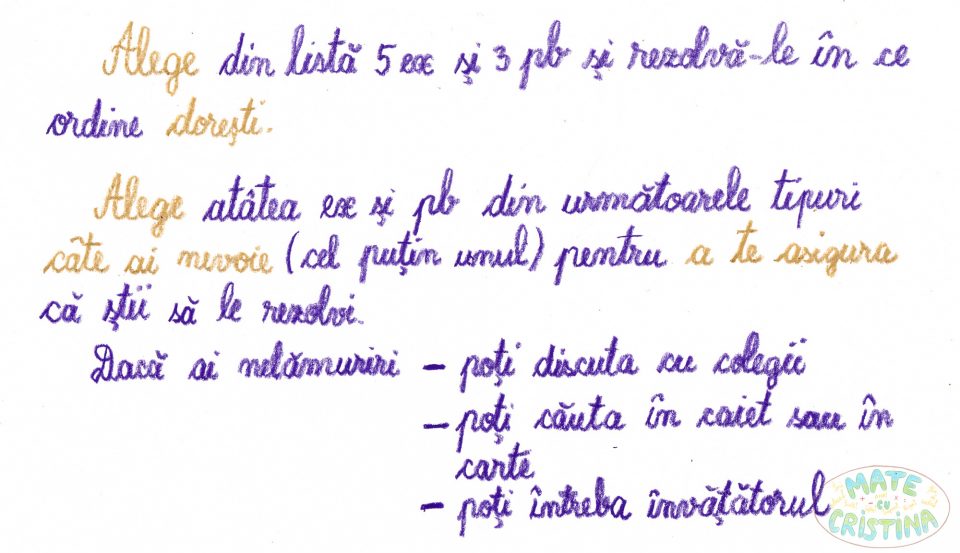 Alege din listă 5 ex și 3 pb și rezolvă-le în ce
ordine dorești.
Alege atâtea ex și pb din următoarele tipuri
câte ai nevoie (cel puțin unul) pentru a te asigura
că știi să le rezolvi.
Dacă ai nelămuriri – poți discuta cu colegii
– poți căuta în caiet sau în
carte
– poți întreba învățătorul
MATE
CU
CRISTINA